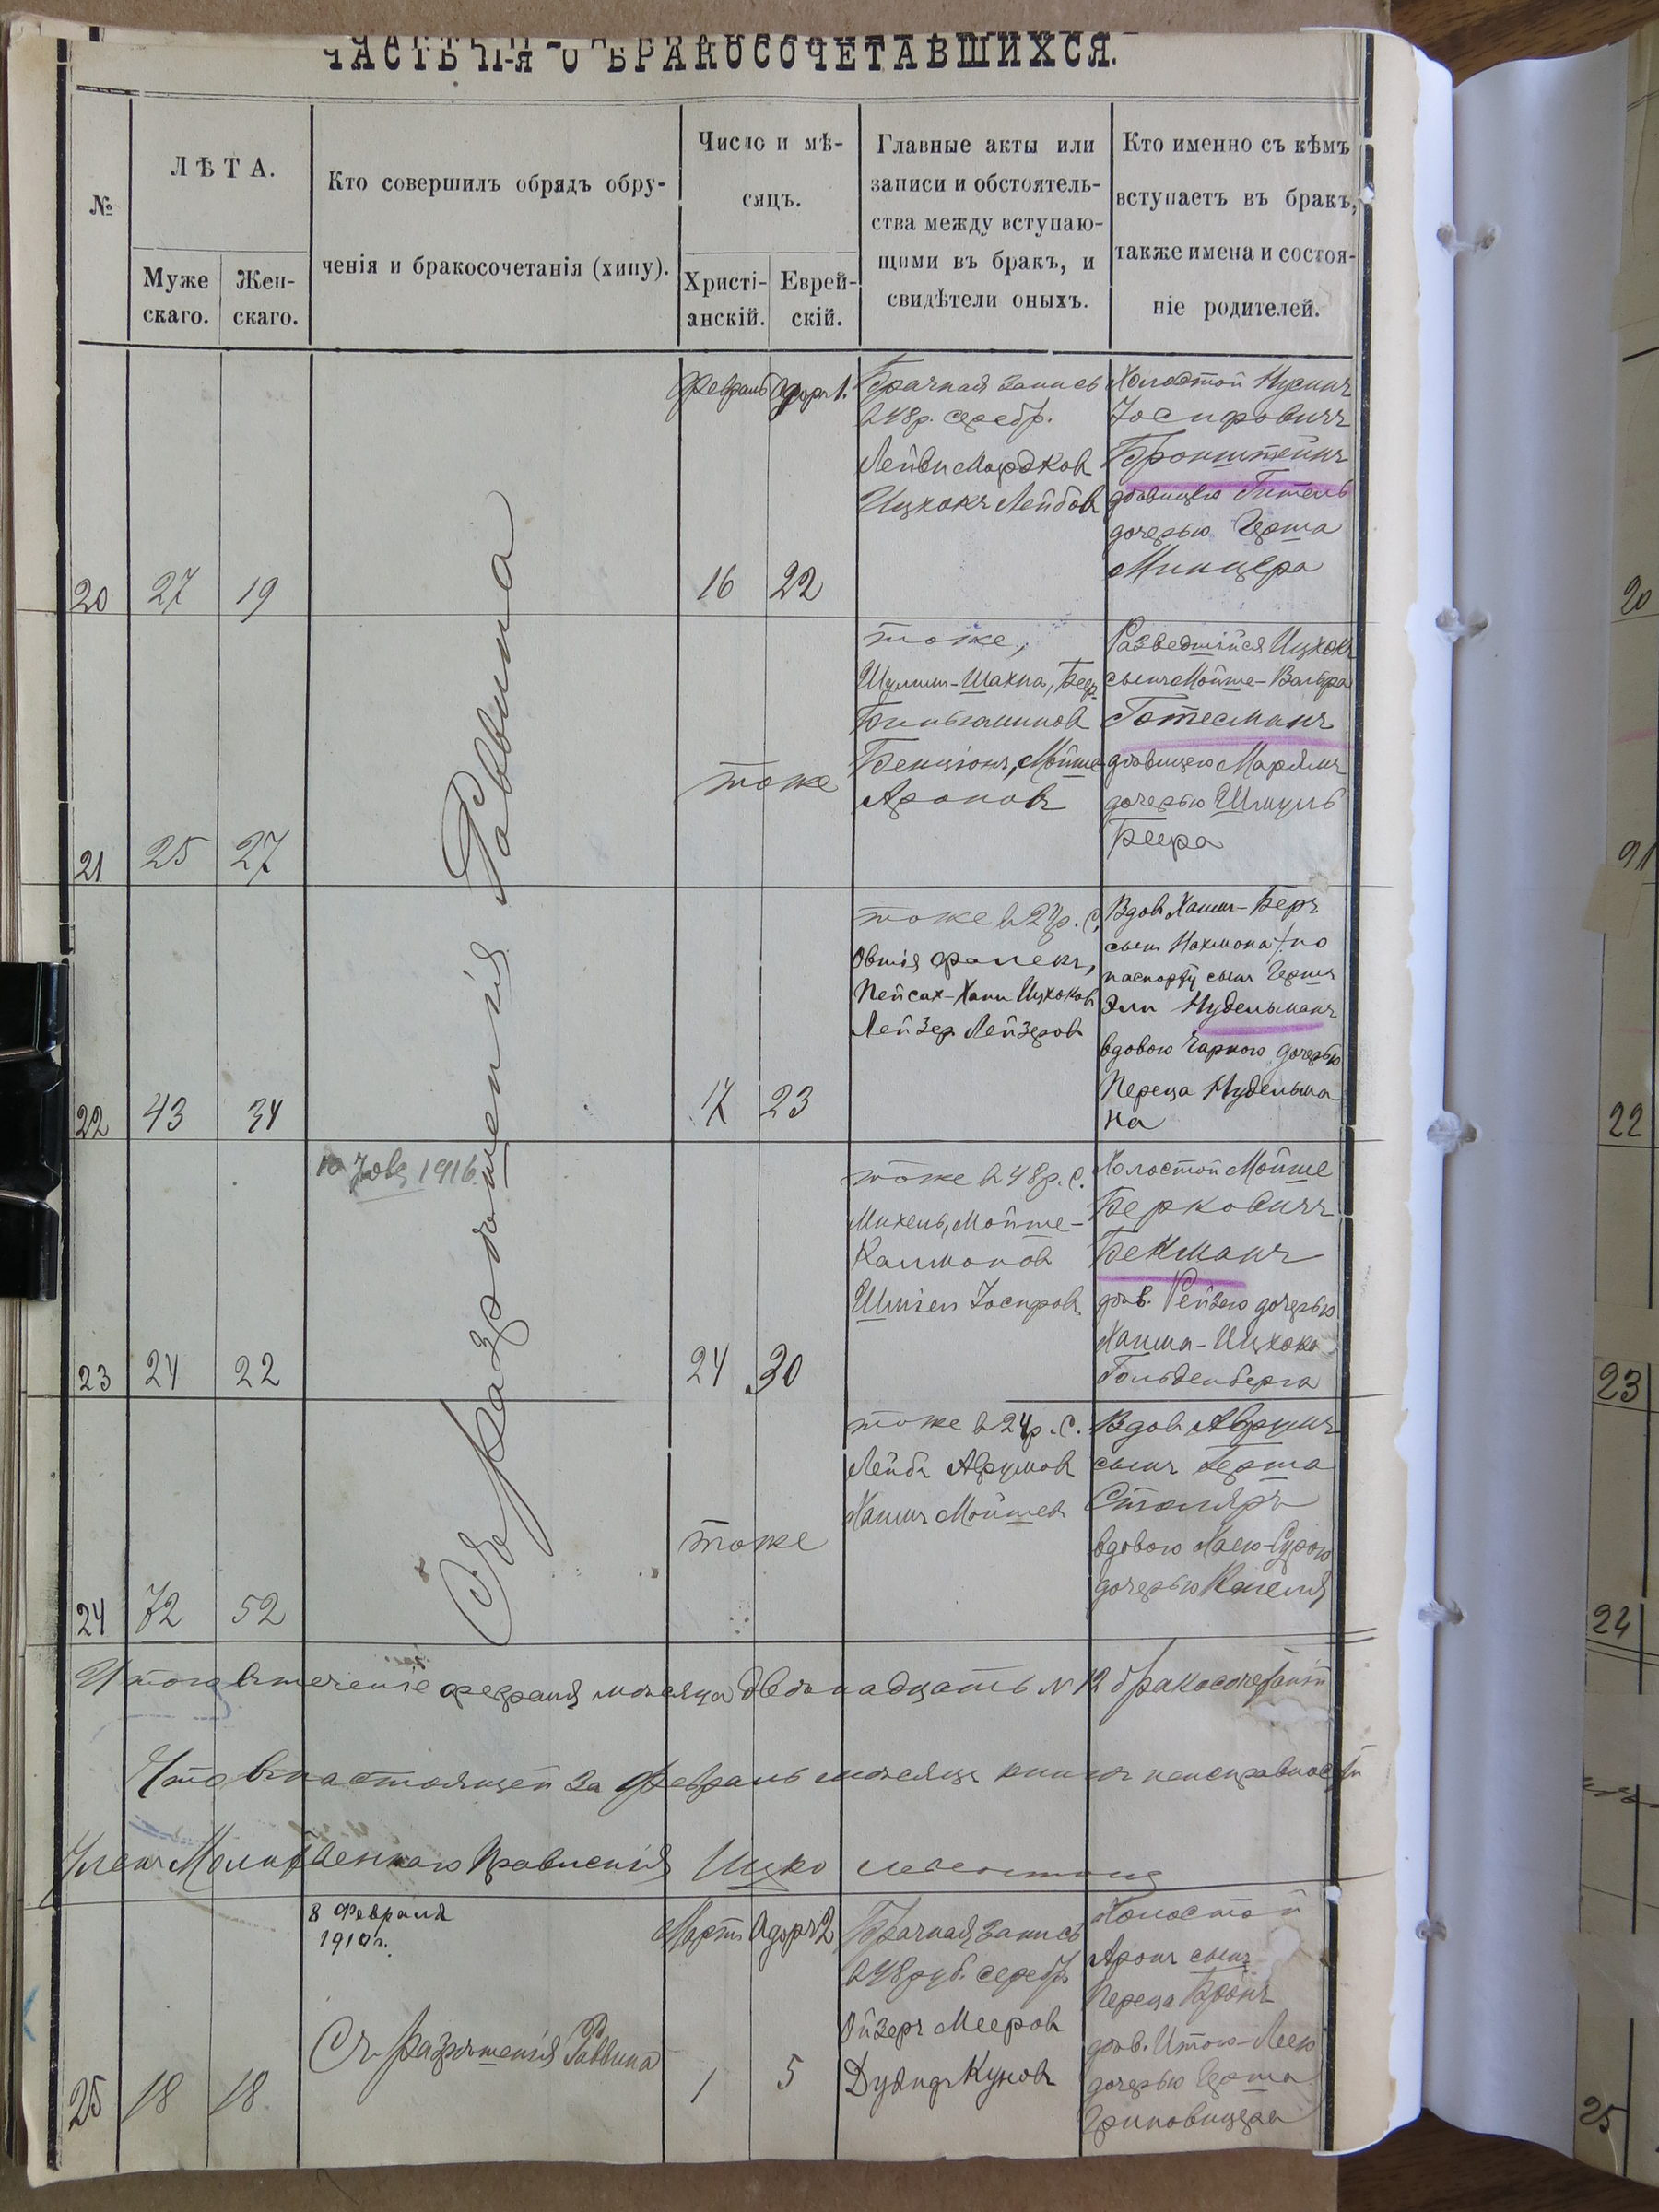 ЧАСТЬ II-Я О БРАКОСОЧЕТАВШИХСЯ.
№
ЛѢТА.
Муже
скаго.
Жен-
скаго.
Кто совершилъ обрядъ обру-
ченія и бракосочетанія (хипу).
Число и мѣ-
сяцъ.
Христі-
анскій.
Еврей-
скій.
Главные акты или
записи и обстоятель-
ства между вступаю-
щими въ бракъ, и
свидѣтели оныхъ.
Кто именно съ кѣмъ
вступаетъ въ бракъ,
также имена и состоя-
ніе родителей.
Съ разрѣшенія Раввина
20
27
19
Февраль
16
Адаръ 1.
22
Брачная запись
в 48 р. серебр.
Лейви Мордков
Ицхокъ Лейбов
Холостой Нусинъ
Іосифовичъ
Бронштейнъ
дѣвицею Гитель
дочерью Герша
Минцера
21
25
27
тоже
тоже,
Шулимъ-Шахна, Бер
Биньоминов
Бенціонъ, Мойше
Аронов
Разведшійся Ицхокъ
сынъ Мойше-Вольфа
Готесманъ
дѣвицею Марьямъ
дочерью Шмуль
Беера
22
43
34
17
23
тоже в 24 р. С,
Овшія Фалекъ,
Пейсах-Хаим Ицхоков
Лейзер Лейзеров
Вдов Хаимъ-Беръ
сынъ Нахмана /по
паспорту сынъ Герша
Эли Нудельманъ
вдовою Чарною дочерью
Переца Нудельма-
на
23
24
22
10 Ноя 1916.
24
30
тоже в 48 р. С.
Михель, Мойше-
Калмонов
Шміел Іосифов
Холостой Мойше
Берковичъ
Бекманъ
дѣв. Рейзею дочерью
Хаима-Ицхока
Гольденберга
24
72
52
тоже
тоже в 24 р. С.
Лейбъ Аврумов
Хаимъ Мойшев
Вдов Аврумъ
сынъ Герша
Столяръ
вдовою Хаею-Сурою
дочерью Кисмля
Итого втеченіе февраля мѣсяца двѣнадцать № 12 бракосочетаній
Что в настоящей за Февраль мѣсяцъ книгѣ неисправностей
Членъ Молитвеннаго Правленія Ицко
25
18
18
8 Февраля
1910 г.
Съ разрѣшенія Раввина
Мартъ
1
Адаръ 2
5
Брачная запись
в 48 руб. серебр.
Ойзеръ Мееров
Дувидъ Кунов
Холостой
Аронъ сынъ
Переца Бронъ
дѣв. Итою-Леею
дочерью Герша
20
21
22
23
24
25